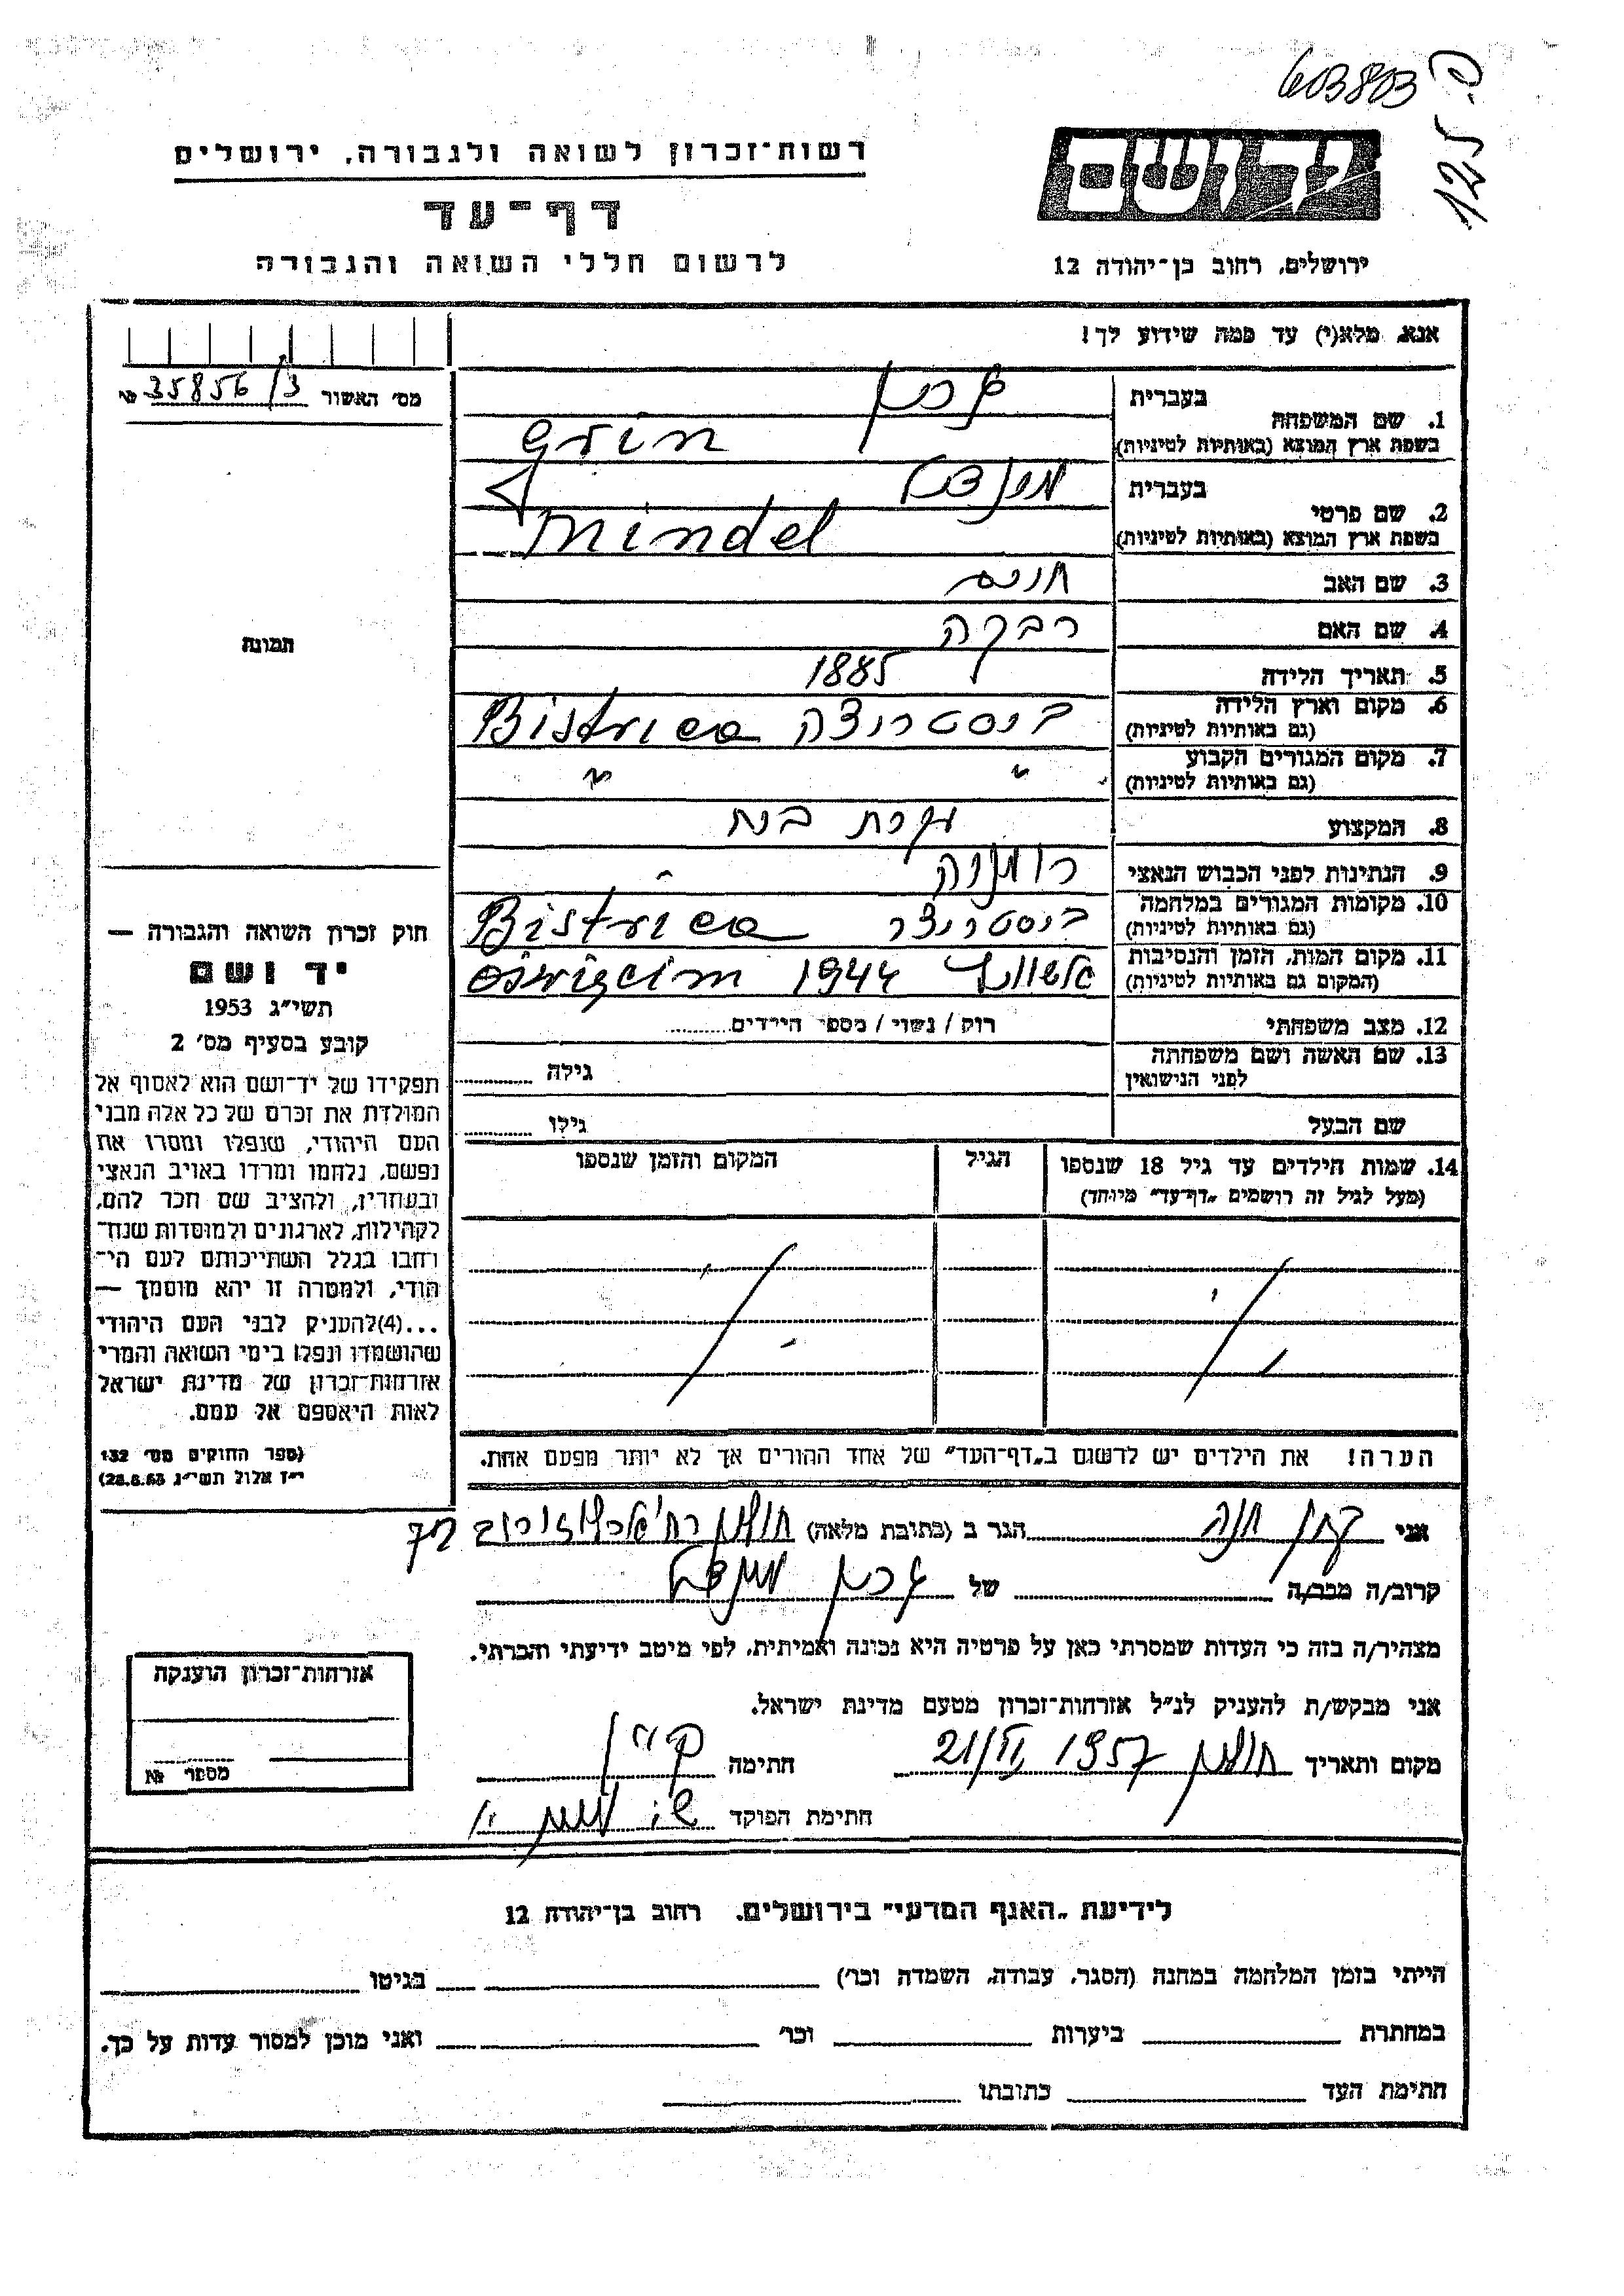 603803
פ. 125
יד ושם
רשות־זכרון לשואה ולגבורה, ירושלים
דף־עד
לרשום חללי השואה והגבורה
ירושלים, רחוב בן־יהודה 12
אנא, מלא(י) עד כמה שידוע לך!
מס׳ האשור 35856/3 №
1. שם המשפחה
בעברית גרין
בשפת ארץ המוצא (באותיות לטיניות) Grün
2. שם פרטי
בעברית מינדל
בשפת ארץ המוצא (באותיות לטיניות) Mindel
3. שם האב חיים
4. שם האם רבקה
5. תאריך הלידה 1885
6. מקום וארץ הלידה
(גם באותיות לטיניות) ביסטריצה Bistrica
7. מקום המגורים הקבוע
(גם באותיות לטיניות) " "
8. המקצוע עקרת בית
9. הנתינות לפני הכבוש הנאצי רומניה
10. מקומות המגורים במלחמה
(גם באותיות לטיניות) ביסטריצה Bistrica
11. מקום המות, הזמן והנסיבות
(המקום גם באותיות לטיניות) 1944 Oświęcim
12. מצב משפחתי רוק / נשוי / מספר הילדים
13. שם האשה ושם משפחתה
לפני הנישואין גילה
שם הבעל גילו
14. שמות הילדים עד גיל 18 שנספו
(מעל לגיל זה רושמים „דף־עד״ מיוחד)
הגיל
המקום והזמן שנספו
הערה! את הילדים יש לרשום ב„דף־העד״ של אחד ההורים אך לא יותר מפעם אחת.
תמונה
חוק זכרון השואה והגבורה —
יד ושם
תשי״ג 1953
קובע בסעיף מס׳ 2
תפקידו של יד־ושם הוא לאסוף אל
המולדת את זכרם של כל אלה מבני
העם היהודי, שנפלו ומסרו את
נפשם, נלחמו ומרדו באויב הנאצי
ובעוזריו, ולהציב שם וזכר להם,
לקהילות, לארגונים ולמוסדות שנח־
רחבו בגלל השתייכותם לעם הי־
הודי, ולמטרה זו יהא מוסמך —
...(4) להעניק לבני העם היהודי
שהושמדו ונפלו בימי השואה והמרי
אזרחות־זכרון של מדינת ישראל
לאות היאספם אל עמם.
(ספר החוקים מס׳ 132
י״ז אלול תשי״ג 28.8.53)
אני חנה הגר ב (כתובת מלאה) חולון
קרוב/ה מכר/ה של גרין מינדל
מצהיר/ה בזה כי העדות שמסרתי כאן על פרטיה היא נכונה ואמיתית, לפי מיטב ידיעתי והכרתי.
אני מבקש/ת להעניק לנ״ל אזרחות־זכרון מטעם מדינת ישראל.
מקום ותאריך חולון 21/VI 1957 חתימה
חתימת הפוקד
אזרחות־זכרון הוענקה
מספר №
לידיעת „האגף המדעי״ בירושלים, רחוב בן־יהודה 12
הייתי בזמן המלחמה במחנה (הסגר, עבודה, השמדה וכו׳) בגיטו
במחתרת ביערות וכו׳ ואני מוכן למסור עדות על כך.
חתימת העד כתובתו